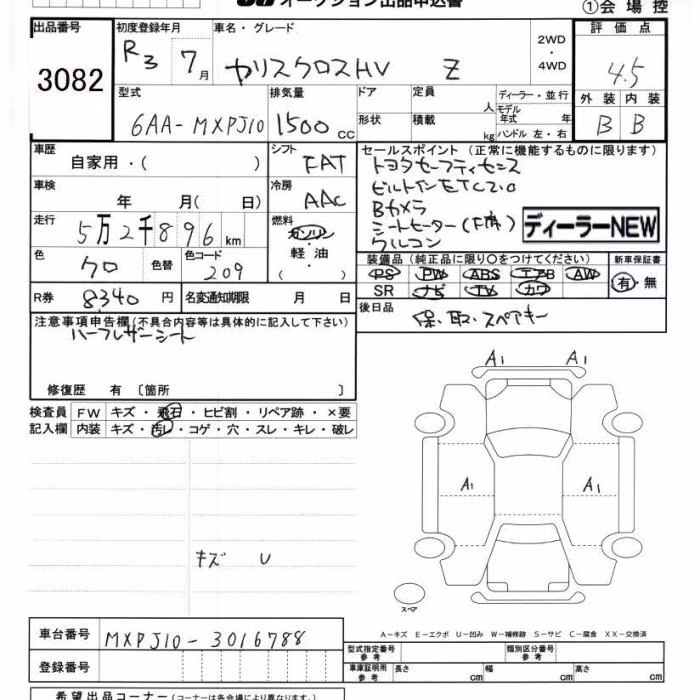 オークション出品申込書
①会場控
出品番号
3082
初度登録年月
R3 7月
車名・グレード
ヤリスクロスHV Z
2WD
・
4WD
評価点
4.5
外装 内装
B B
型式
6AA-MXPJ10
排気量
1500 CC
ドア
定員
人
ディーラー・並行
モデル年式 年
形状
積載
kg
ハンドル 左・右
車歴
自家用・( )
シフト
FAT
セールスポイント (正常に機能するものに限ります)
トヨタセーフティセンス
ビルトインETC2.0
Bカメラ
シートヒーター(F席)
クルコン
ディーラーNEW
車検
年 月( 日)
冷房
AAC
走行
5万2千896 km
燃料
ガソリン
・
軽油
・
( )
色
クロ
色替
色コード
209
装備品 (純正品に限り○をつけてください)
新車保証書
PS PW ABS エアB AW
SR ナビ TV カワ
有・無
R券
8340 円
名変通知期限 月 日
後日品
保、取、スペアキー
注意事項申告欄(不具合内容等は具体的に記入して下さい)
ハーフレザーシート
修復歴 有 〔箇所 〕
検査員
記入欄
FW キズ・飛石・ヒビ割・リペア跡・×要
内装 キズ・汚レ・コゲ・穴・スレ・キレ・破レ
A1 A1
A1 A1
キズ U
スペア
A－キズ E－エクボ U－凹み W－補修跡 S－サビ C－腐食 XX－交換済
車台番号
MXPJ10-3016788
登録番号
型式指定番号
参考
類別区分番号
参考
車庫証明用
参考
長さ cm
幅 cm
高さ cm
希望出品コーナー (コーナーは各会場により異なります。)